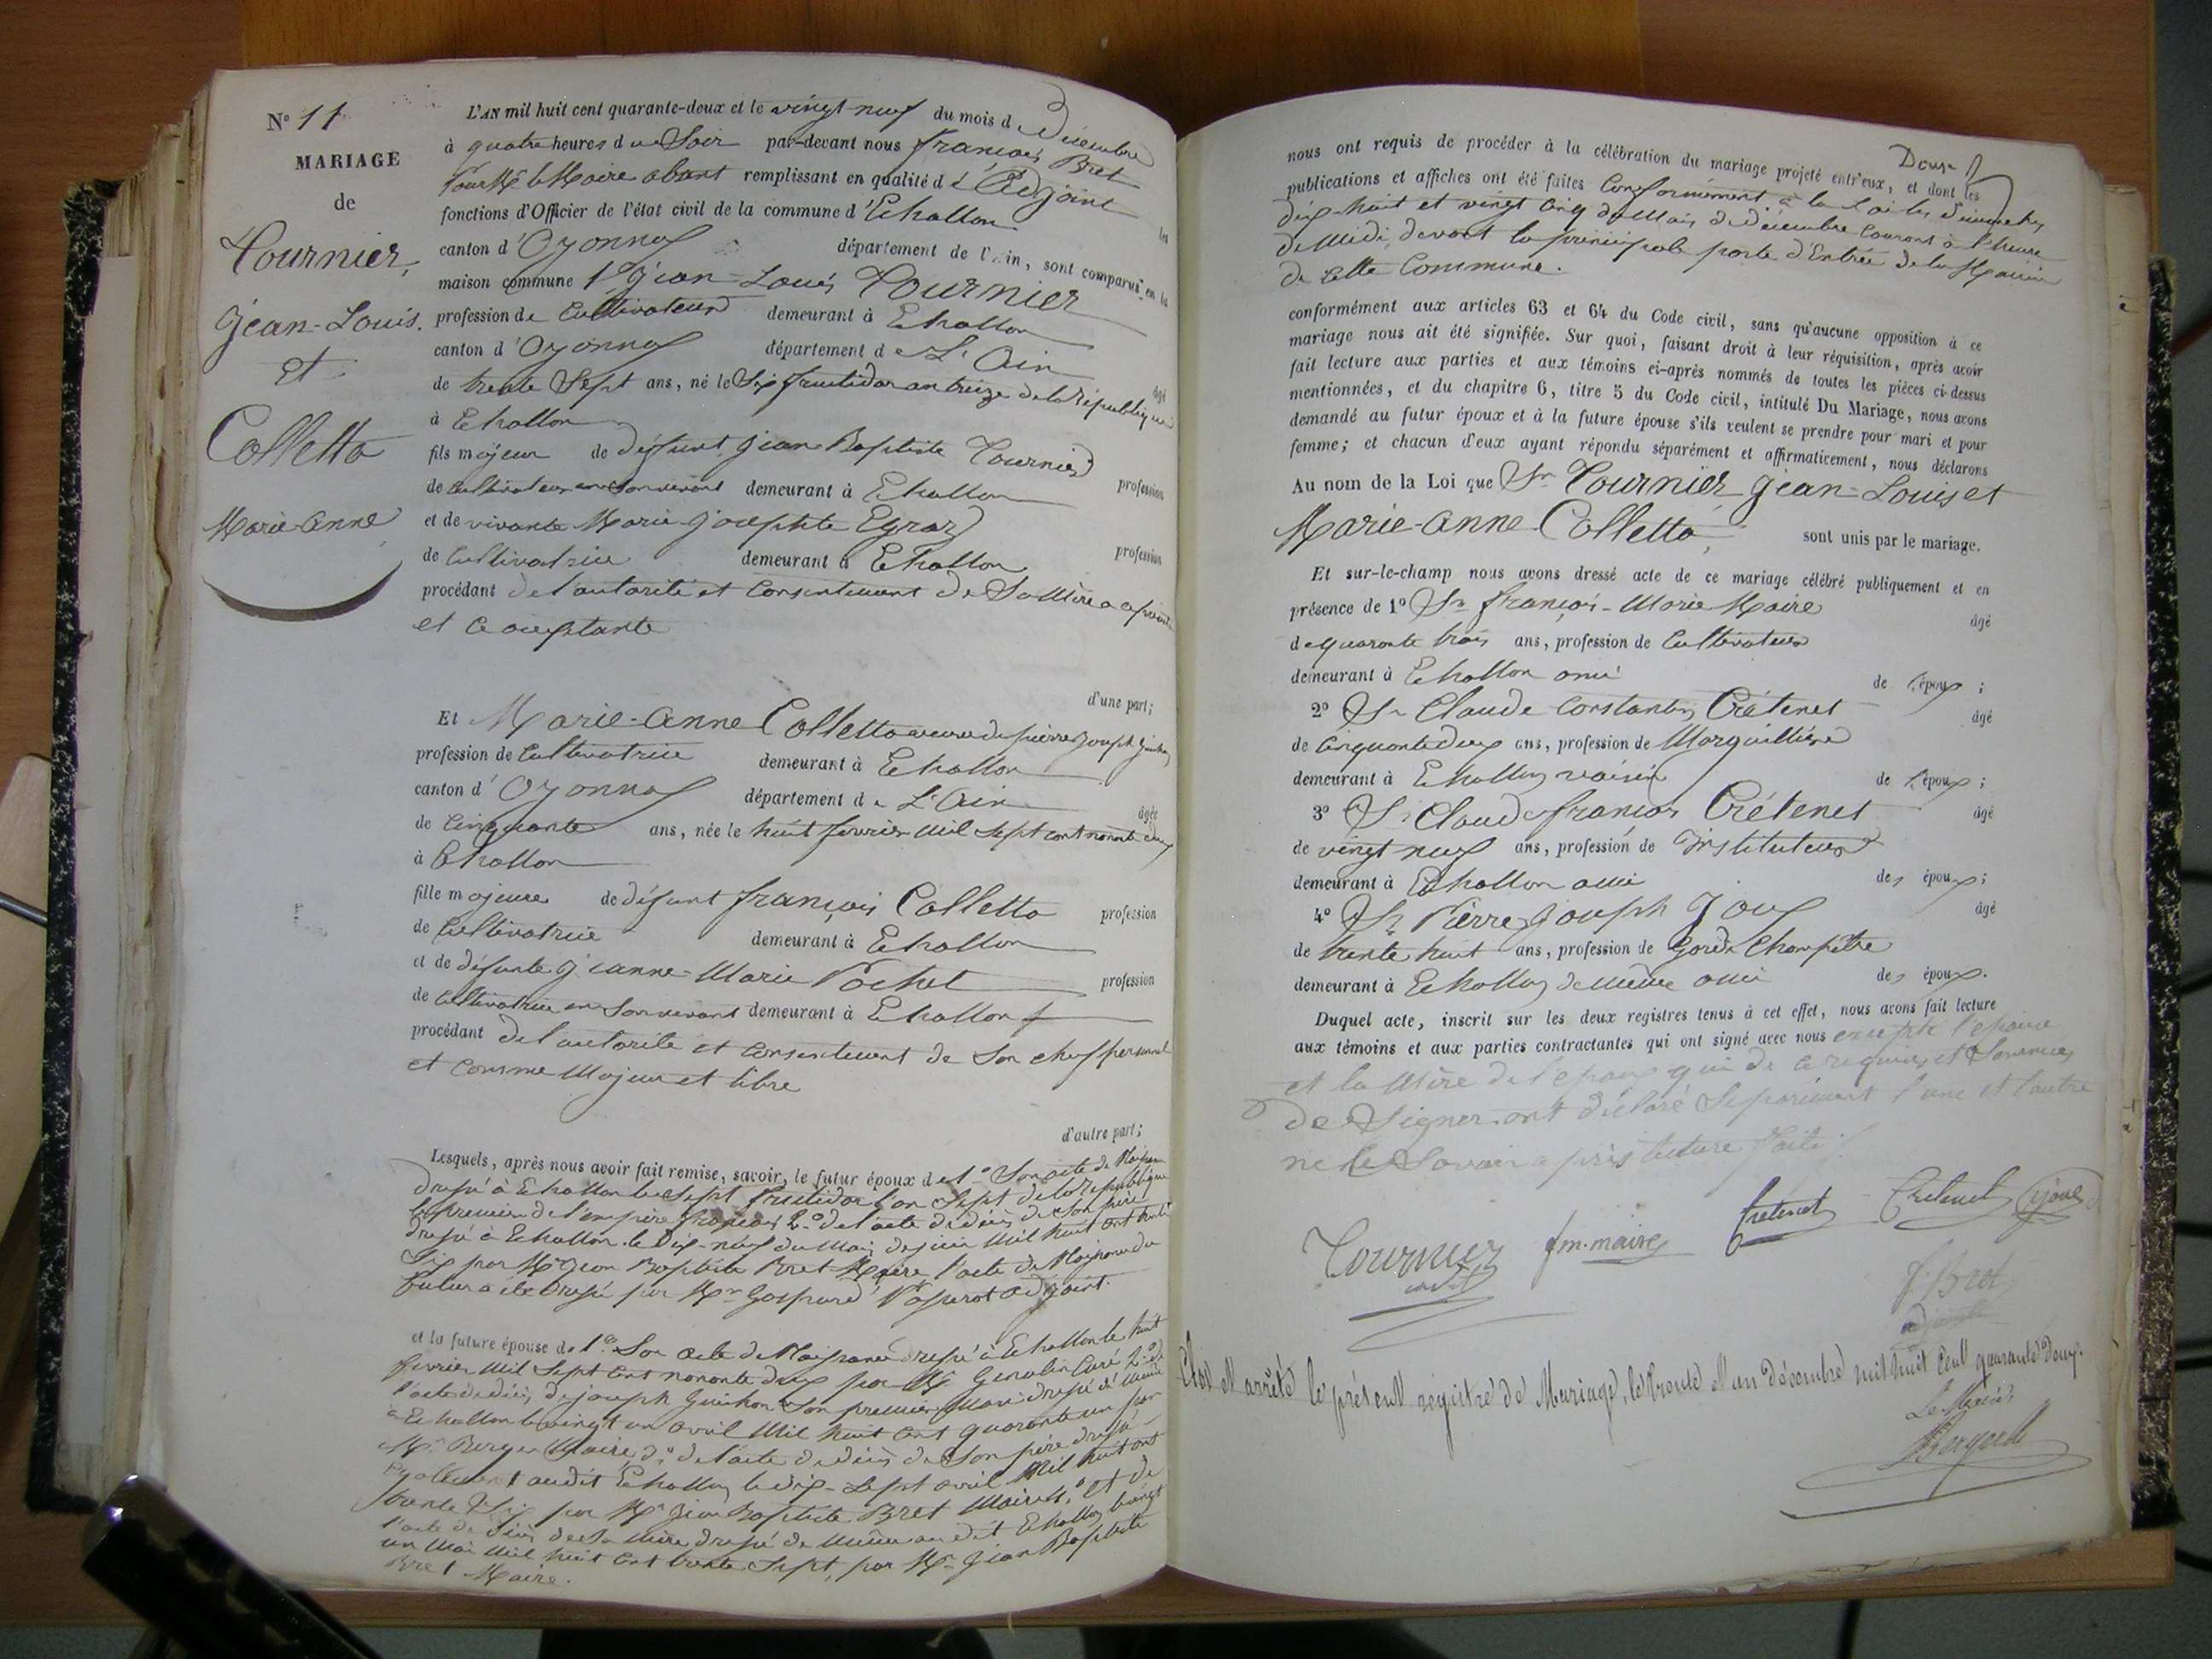 N° 11
MARIAGE
de
Tournier,
Jean-Louis.
et
Colletta
Marie-anne
L'AN mil huit cent quarante-deux et le vingt-neuf du mois d Décembre
à quatre heures du Soir par-devant nous françois Bret
Pour Mr le Maire absent remplissant en qualité d'Adjoint les
fonctions d'Officier de l'état civil de la commune d'Echallon
canton d'Oyonnax département de l'Ain, sont comparus en la
maison commune 1° Jean-Louis Tournier
profession de Cultivateur demeurant à Echallon
canton d'Oyonnax département de L'Ain âgé
de trente Sept ans, né le Six fructidor an treize de la République
à Echallon
fils majeur de défunt Jean Baptiste Tournier profession
de Cultivateur en son vivant demeurant à Echallon
et de vivante Marie-Josephte Egraz profession
de Cultivatrice demeurant à Echallon
procédant de l'autorité et Consentement de Sa Mère
et acceptante
d'une part;
Et Marie-Anne Colletta veuve de pierre Joseph Guichon
profession de Cultivatrice demeurant à Echallon
canton d'Oyonnax département de L'Ain âgée
de Cinquante ans, née le huit fevrier mil Sept cent nonante deux
à Echallon
fille majeure de défunt françois Colletta profession
de Cultivatrice demeurant à Echallon
et de défunte Jeanne-Marie Pochet profession
de Cultivatrice en Son vivant demeurant à Echallon
procédant de l'autorité et Consentement de Son chef personnel
et comme Majeur et libre
d'autre part;
Lesquels, après nous avoir fait remise, savoir, le futur époux de 1° Son acte de Naissance
dressé à Echallon le Sept fructidor l'an Sept de la République
le premier de l'empire français 2° de l'acte de décès de Son père
dressé à Echallon le Dix-neuf du Mois de juin Mil huit cent trente
Six par Mr Jean Baptiste Bret Maire, l'acte de Naissance du
futur a été dressé par Mr Gaspard adjoint.
et la future épouse de 1° Son acte de Naissance dressé à Echallon le huit
fevrier Mil Sept cent nonante deux par Mr Genolin Curé 2° de
l'acte de décès de joseph Guichon Son premier Mari dressé de même
à Echallon le vingt un avril Mil huit cent quarante un par
Mr Berger Maire, 3° de l'acte de décès de Son père dressé
également audit Echallon le dix-Sept avril Mil huit cent
trente Six par Mr Jean Baptiste Bret Maire 4° et de
l'acte de décès de Sa Mère dressé de même audit Echallon le vingt
un Mai Mil huit cent trente Sept, par Mr Jean Baptiste
Bret Maire.
nous ont requis de procéder à la célébration du mariage projeté entr'eux, et dont les Deux
publications et affiches ont été faites Conformement à la Loi les dimanches
dix-huit et vingt cinq du Mois de décembre Courant à l'heure
de Midi, devant la principale porte d'Entrée de la Mairie
de cette Commune.
conformément aux articles 63 et 64 du Code civil, sans qu'aucune opposition à ce
mariage nous ait été signifiée. Sur quoi, faisant droit à leur réquisition, après avoir
fait lecture aux parties et aux témoins ci-après nommés de toutes les pièces ci-dessus
mentionnées, et du chapitre 6, titre 5 du Code civil, intitulé Du Mariage, nous avons
demandé au futur époux et à la future épouse s'ils veulent se prendre pour mari et pour
femme; et chacun d'eux ayant répondu séparément et affirmativement, nous déclarons
Au nom de la Loi que Sr Tournier Jean-Louis et
Marie-Anne Colletta, sont unis par le mariage.
Et sur-le-champ nous avons dressé acte de ce mariage célébré publiquement et en
présence de 1° Sr françois-Marie Maire âgé
de quarante trois ans, profession de Cultivateur
demeurant à Echallon ami de l'époux;
2° Sr Claude Constantin Crétenet âgé
de Cinquante deux ans, profession de Marguillier
demeurant à Echallon voisin de l'époux;
3° Sr Claude françois Crétenet âgé
de vingt neuf ans, profession de Instituteur
demeurant à Echallon ami des époux;
4° Sr Pierre Joseph Joux âgé
de trente huit ans, profession de Garde Champêtre
demeurant à Echallon de même ami des époux.
Duquel acte, inscrit sur les deux registres tenus à cet effet, nous avons fait lecture
aux témoins et aux parties contractantes qui ont signé avec nous excepté l'épouse
et la Mère de l'epoux qui de ce requises et Sommées
de Signer ont déclaré Séparément l'une et l'autre
ne le Savoir après lecture faite.
Tournier fm. maire Cretenet Cretenet Joux
f. Bret
adjoint
Clos et arrêté le présent régistre de Mariage, le trente et un décembre mil huit cent quarante deux.
Le Maire